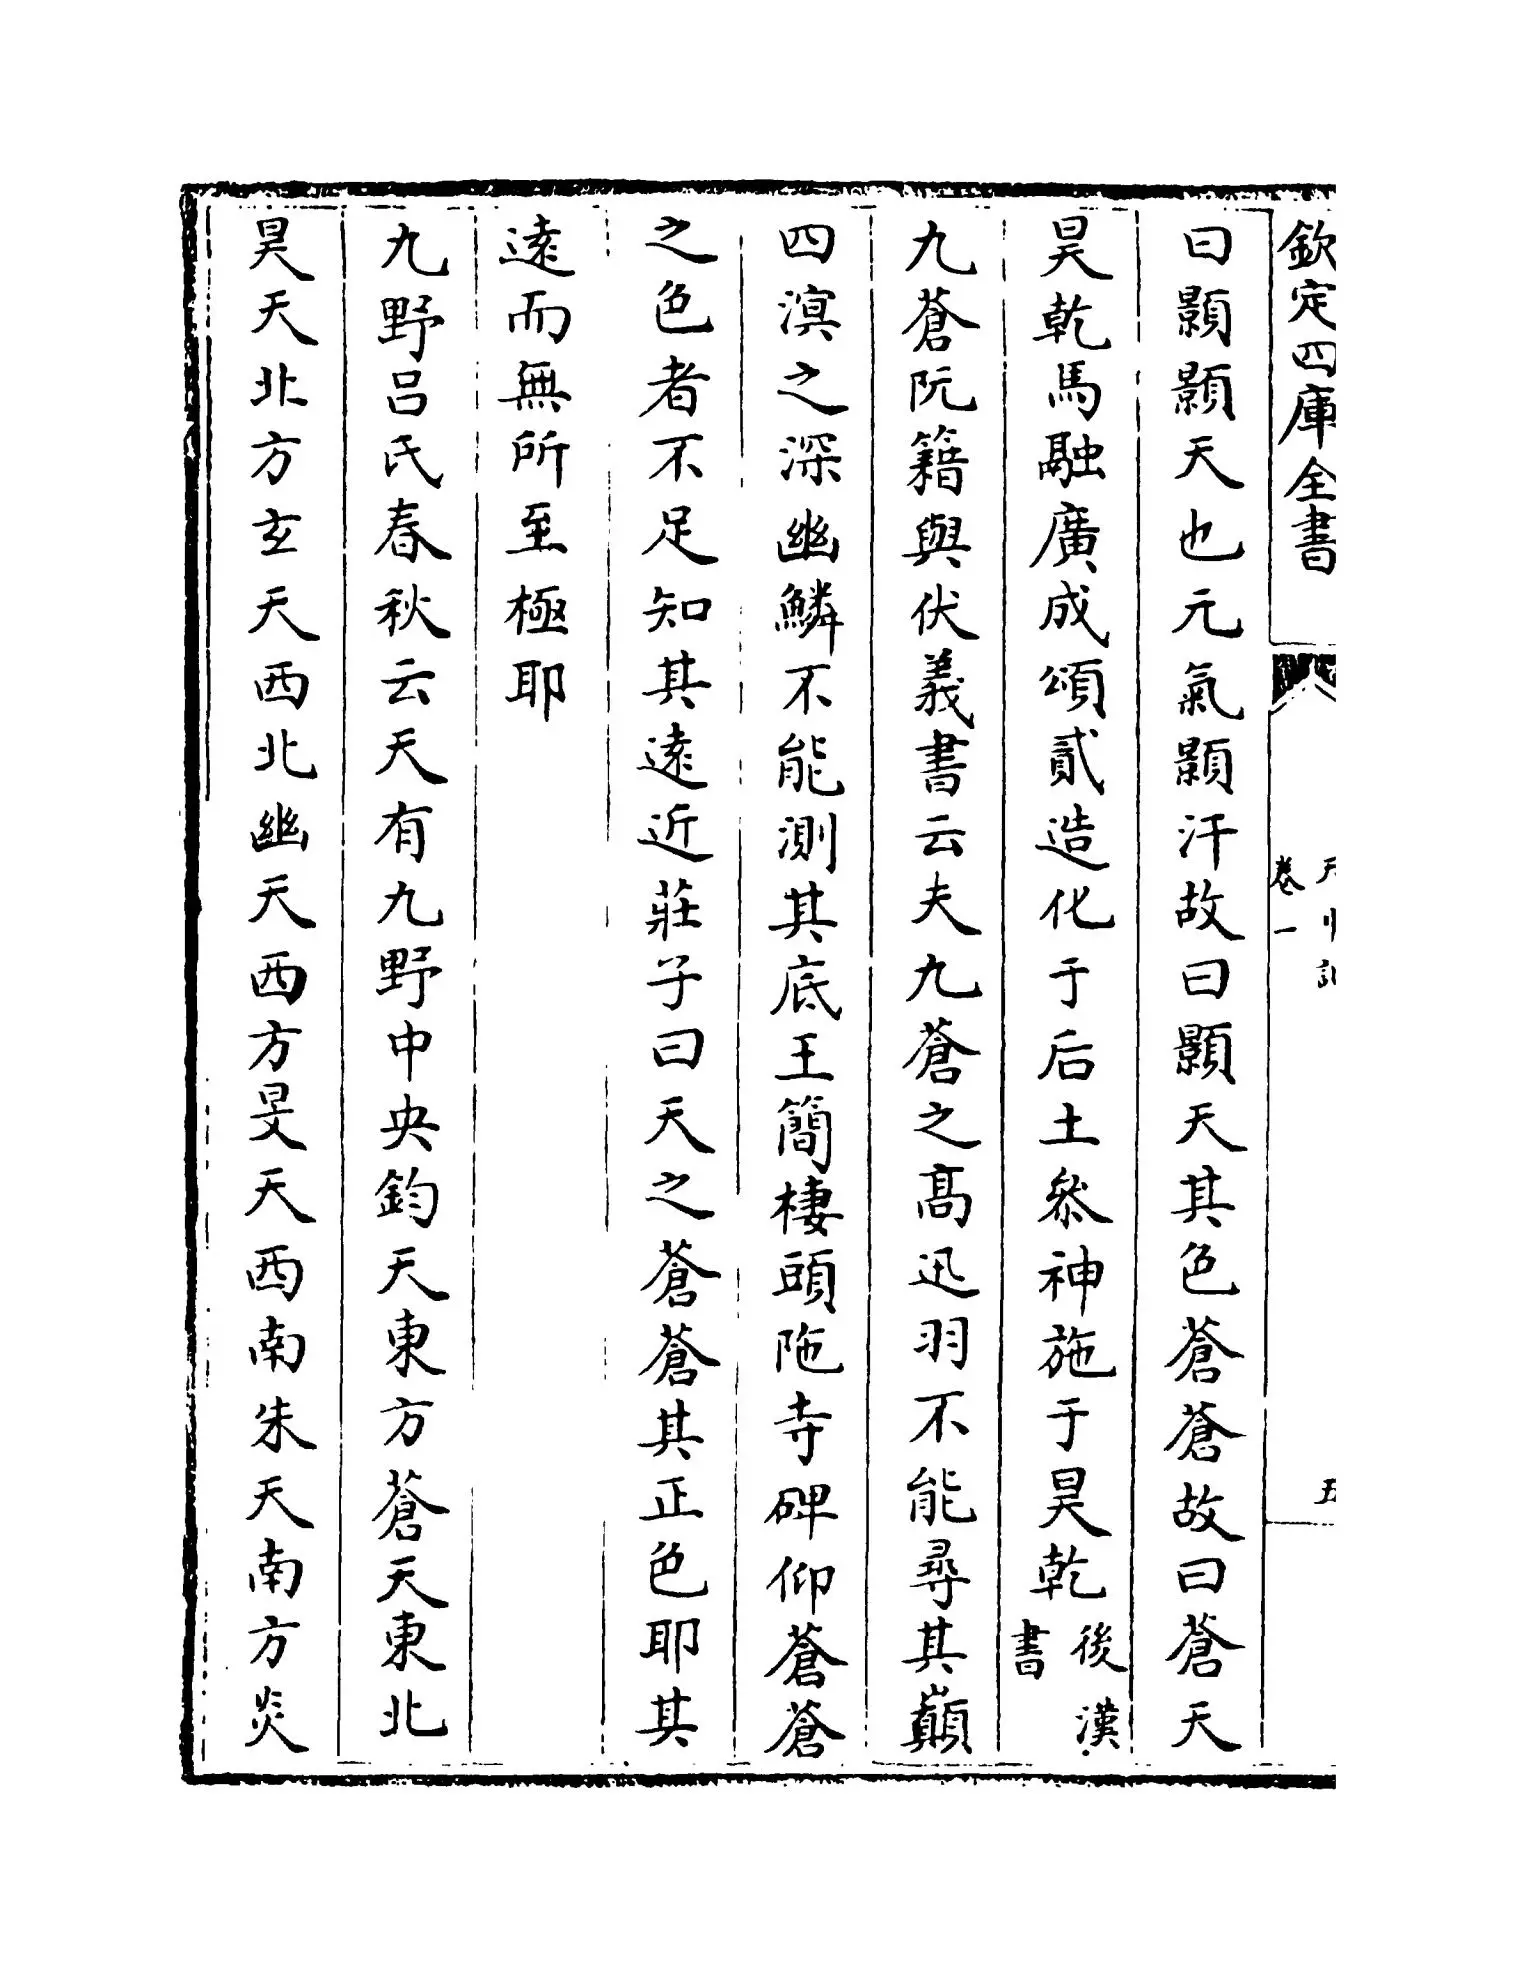 欽定四庫全書
卷一
五
曰顥顥天也元氣顥汗故曰顥天其色蒼蒼故曰蒼天
昊乾馬融廣成頌貳造化于后土叅神施于昊乾後漢
書
九蒼阮籍與伏義書云夫九蒼之髙迅羽不能尋其巔
四溟之深幽鱗不能測其底王簡棲頭陁寺碑仰蒼蒼
之色者不足知其逺近莊子曰天之蒼蒼其正色耶其
逺而無所至極耶
九野吕氏春秋云天有九野中央鈞天東方蒼天東北
昊天北方玄天西北幽天西方旻天西南朱天南方炎